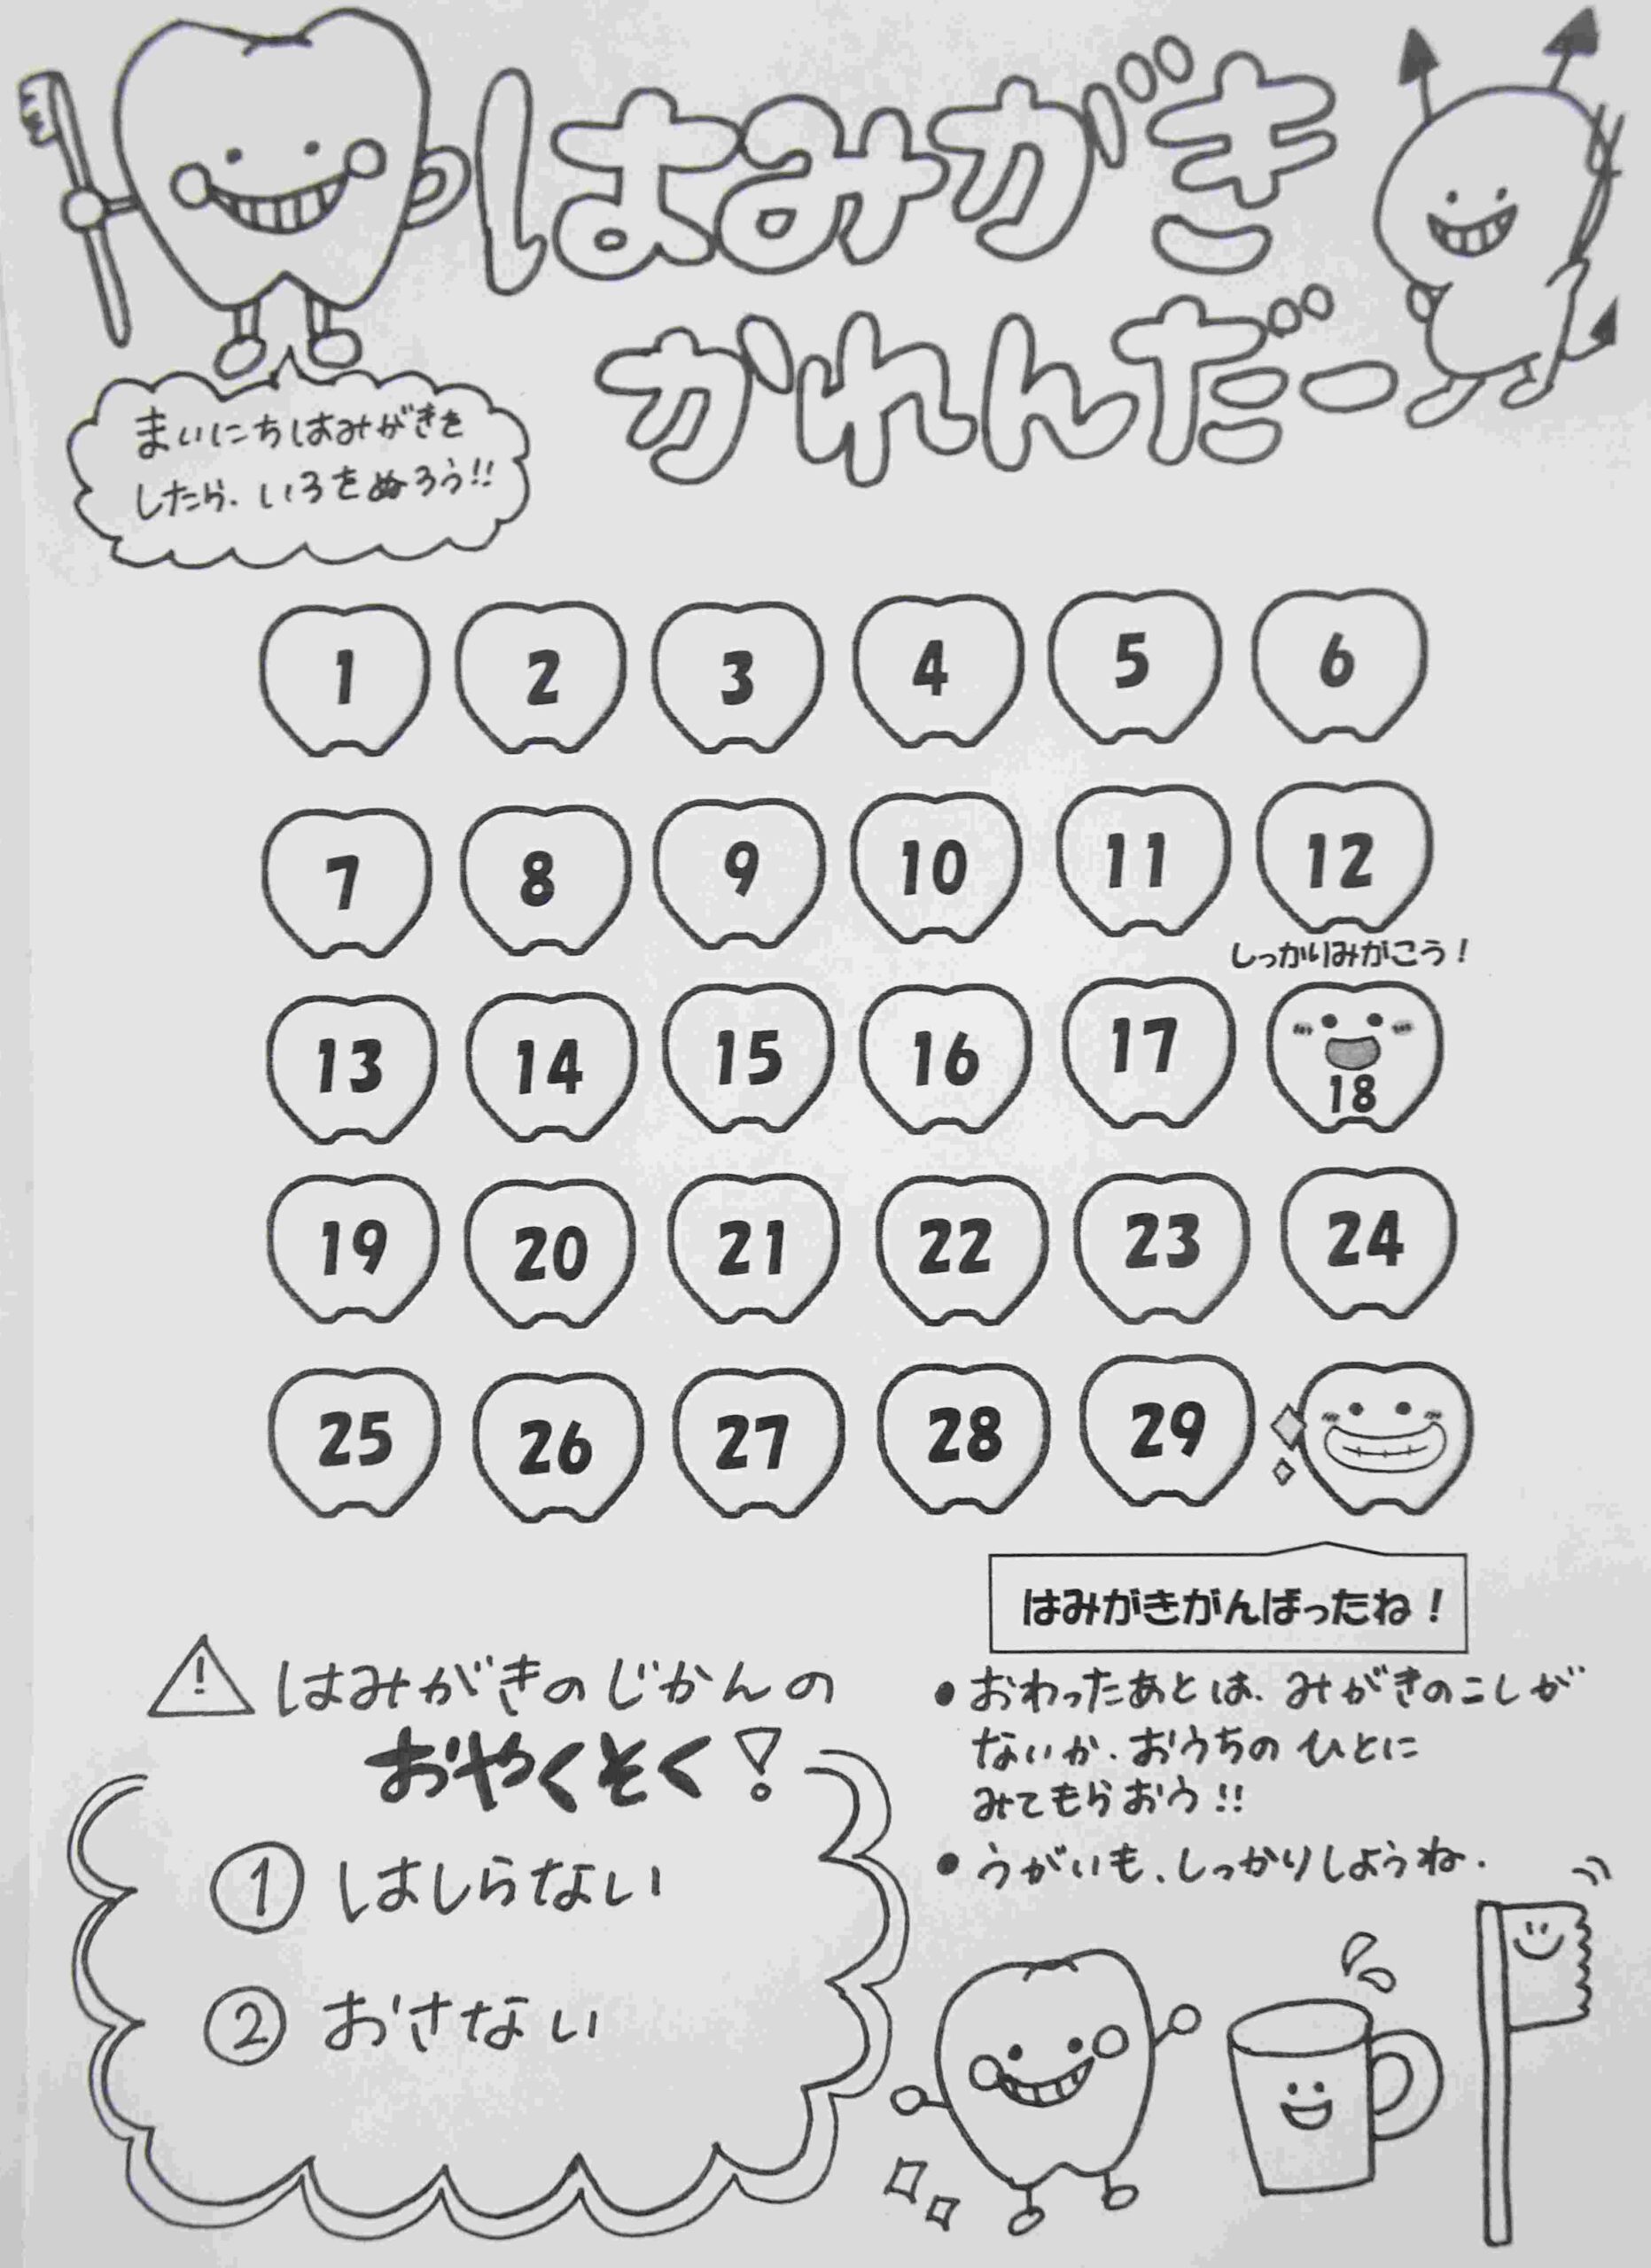 はみがき
かれんだー
まいにちはみがきを
したら、いろをぬろう!!
1 2 3 4 5 6
7 8 9 10 11 12
しっかりみがこう！
13 14 15 16 17 18
19 20 21 22 23 24
25 26 27 28 29
はみがきがんばったね！
! はみがきのじかんの
おやくそく!
① はしらない
② おさない
● おわったあとは、みがきのこしが
ないか、おうちのひとに
みてもらおう!!
● うがいも、しっかりしようね.